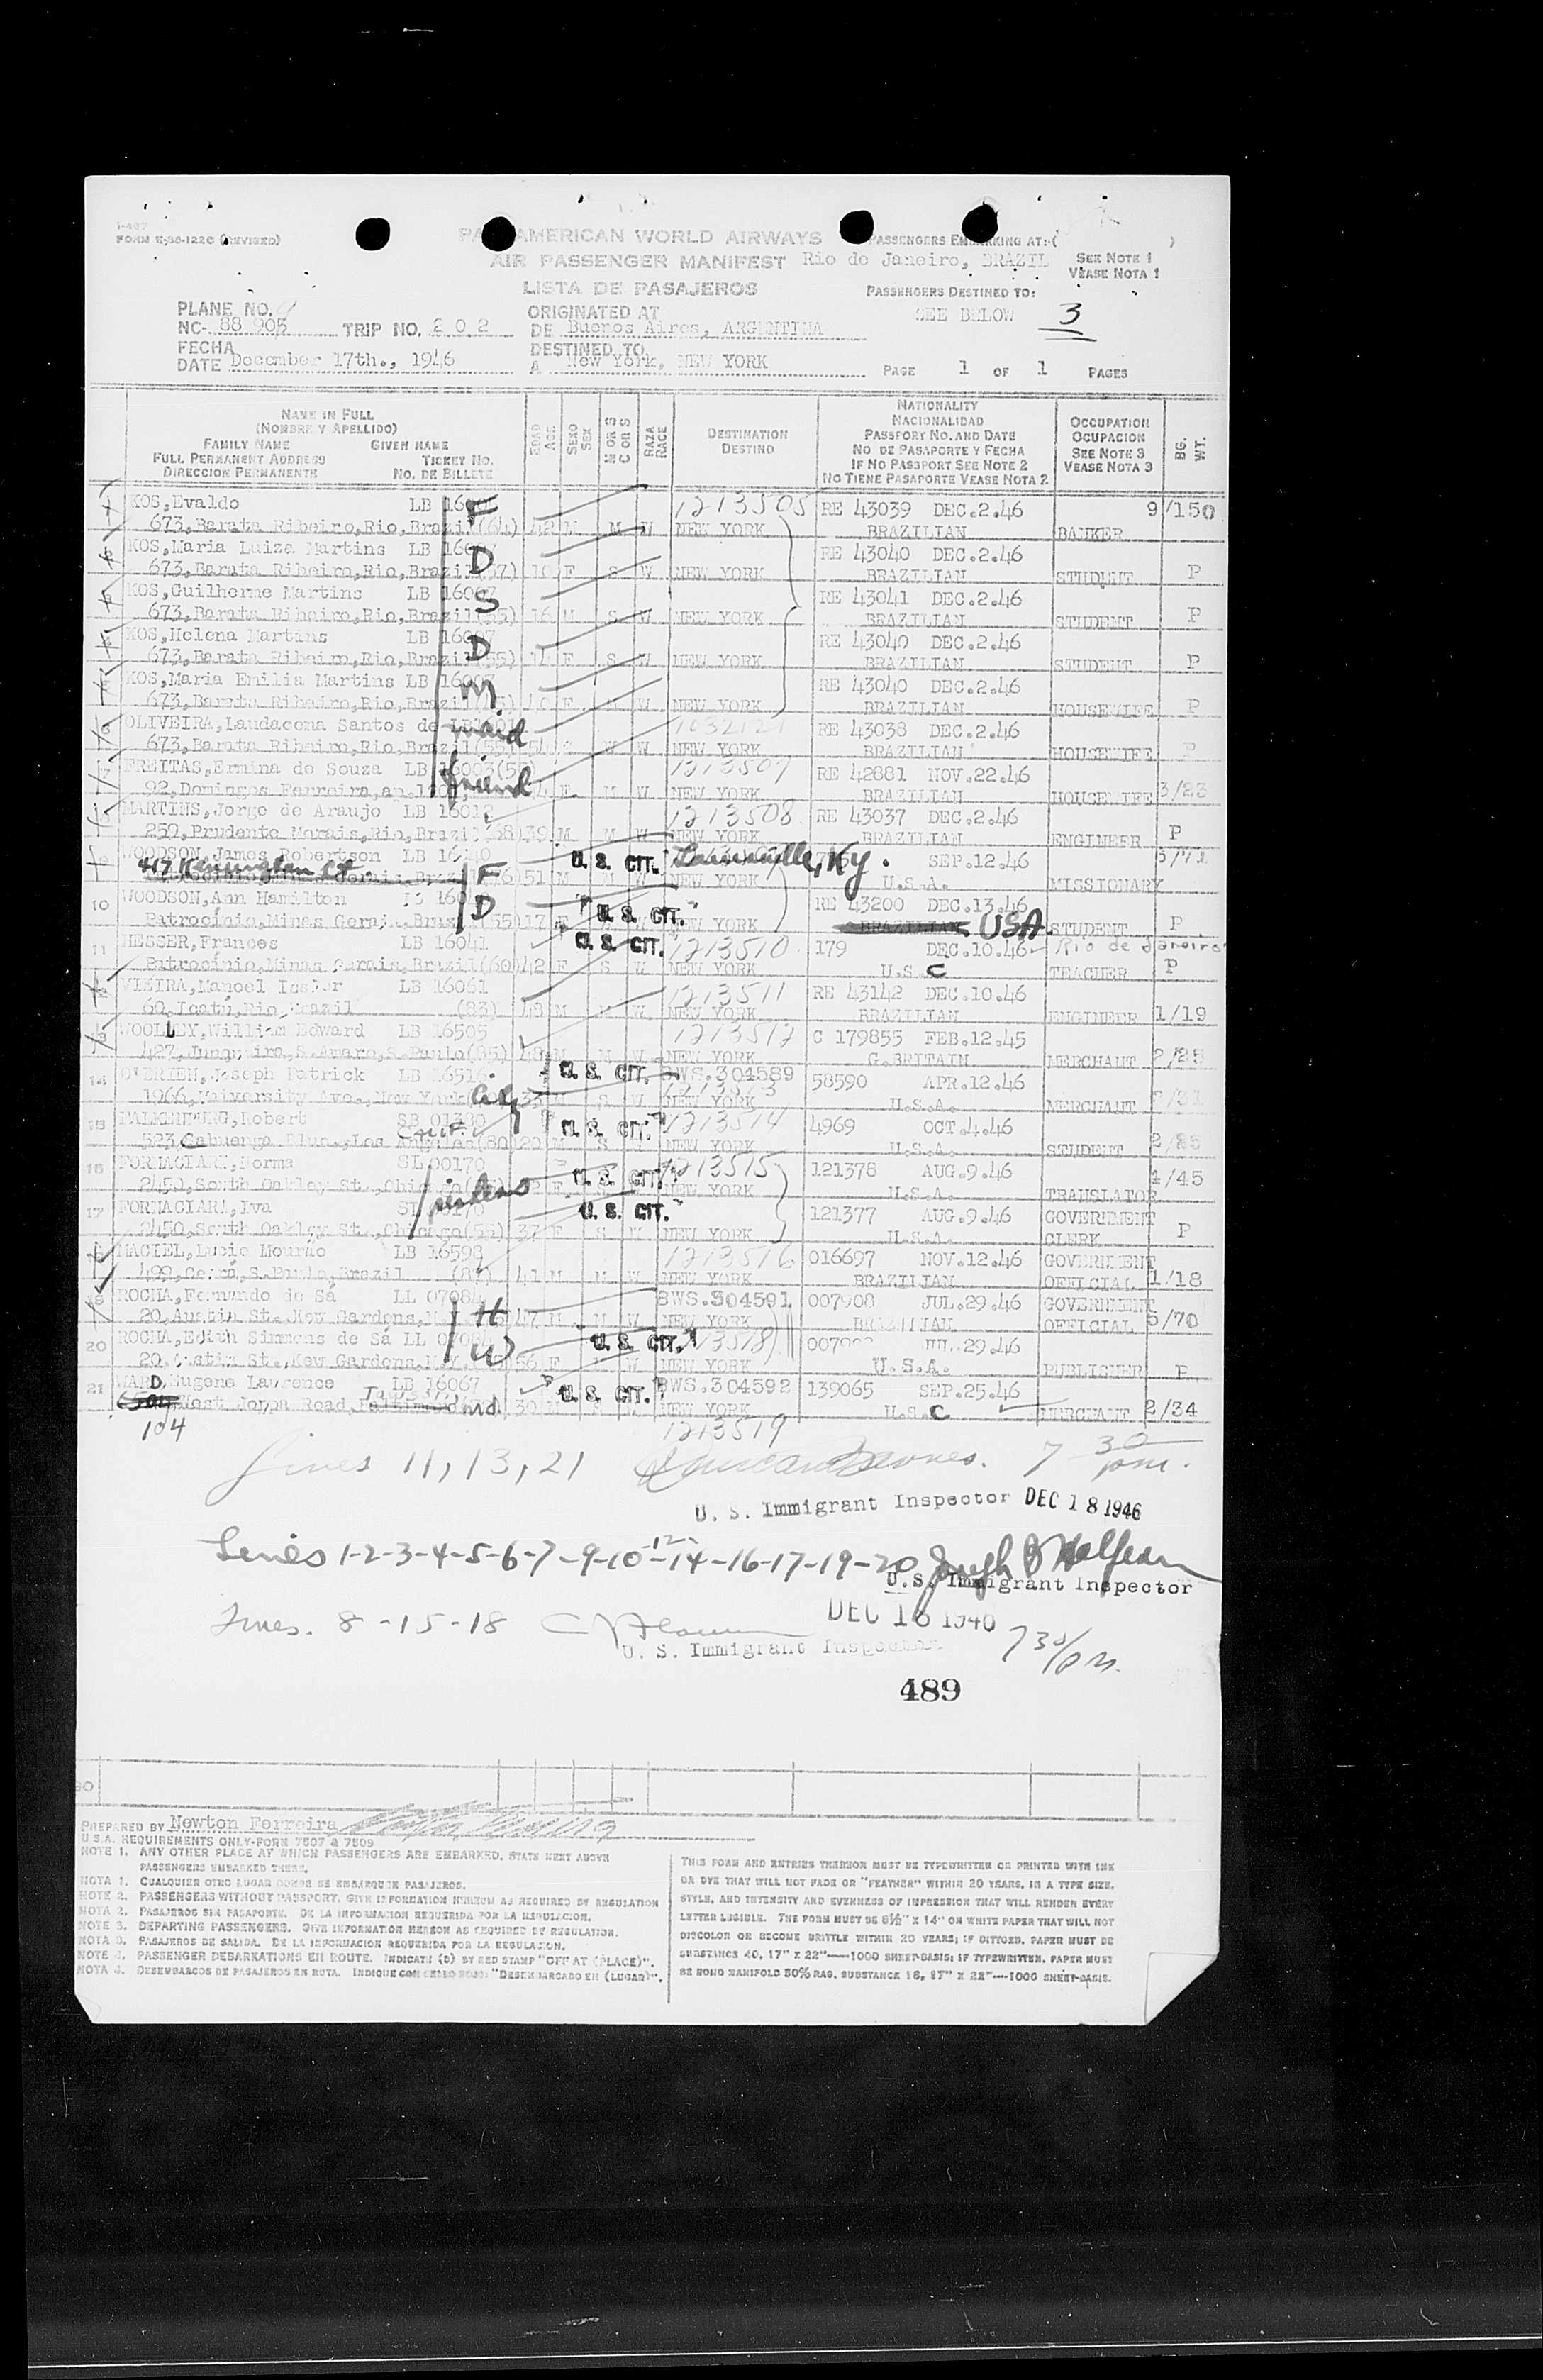 I-467
FORM E-38-122C (REVISED)
PAN AMERICAN WORLD AIRWAYS
AIR PASSENGER MANIFEST
LISTA DE PASAJEROS
PASSENGERS EMBARKING AT: ( )
Rio de Janeiro, BRAZIL
SEE NOTE 1
VEASE NOTA 1
PASSENGERS DESTINED TO:
SEE BELOW 3
PLANE NO.
NC- 88 905 TRIP NO. 2 0 2
ORIGINATED AT
DE Buenos Aires, ARGENTINA
FECHA
DATE December 17th., 1946
DESTINED TO
A New York, NEW YORK
PAGE 1 OF 1 PAGES
NAME IN FULL
(NOMBRE Y APELLIDO)
FAMILY NAME GIVEN NAME
FULL PERMANENT ADDRESS TICKET NO.
DIRECCION PERMANENTE NO. DE BILLETE
EDAD AGE
SEXO SEX
M OR S C OR S
RAZA RACE
DESTINATION
DESTINO
NATIONALITY
NACIONALIDAD
PASSPORT NO. AND DATE
NO DE PASAPORTE Y FECHA
IF NO PASSPORT SEE NOTE 2
NO TIENE PASAPORTE VEASE NOTA 2
OCCUPATION
OCUPACION
SEE NOTE 3
VEASE NOTA 3
BG. WT.
1 KOS,Evaldo LB F 1213505 RE 43039 DEC.2.46 9/150
673,Barata Ribeiro,Rio,Brazil(64) 42 M M W NEW YORK BRAZILIAN BANKER
KOS,Maria Luiza Martins LB D RE 43040 DEC.2.46
673,Barata Ribeiro,Rio,Brazil 10 F S W NEW YORK BRAZILIAN STUDENT P
KOS,Guilherme Martins LB 16007 S RE 43041 DEC.2.46
673,Barata Ribeiro,Rio,Brazil 16 M S W NEW YORK BRAZILIAN STUDENT P
KOS,Helena Martins LB 16007 D RE 43040 DEC.2.46
673,Barata Ribeiro,Rio,Brazil 14 F S W NEW YORK BRAZILIAN STUDENT P
KOS,Maria Emilia Martins LB 16007 M RE 43040 DEC.2.46
673,Barata Ribeiro,Rio,Brazil 40 F M W NEW YORK BRAZILIAN HOUSEWIFE P
6 OLIVEIRA,Laudacena Santos de maid 1032121 RE 43038 DEC.2.46
673,Barata Ribeiro,Rio,Brazil(55) 54 W W NEW YORK BRAZILIAN HOUSEWIFE P
7 FREITAS,Ermina de Souza LB friend 1213507 RE 42881 NOV.22.46
92,Domingos Ferreira,ap. F M W NEW YORK BRAZILIAN HOUSEWIFE 3/23
MARTINS,Jorge de Araujo LB 16012 1213508 RE 43037 DEC.2.46
259,Prudente Morais,Rio,Brazil(68) 39 M M W NEW YORK BRAZILIAN ENGINEER P
WOODSON,James Robertson LB U. S. CIT. Louisville, Ky. SEP.12.46
417 Kensington Ct. F 51 M NEW YORK U.S.A. MISSIONARY
10 WOODSON,Ann Hamilton D U. S. CIT. RE 43200 DEC.13.46
Patrocínio,Minas Gerais,Brazil(55) 17 F NEW YORK BRAZILIAN USA STUDENT P
11 HESSER,Frances LB 16041 U. S. CIT. 1213510 179 DEC.10.46 Rio de Janeiro
Patrocínio,Minas Gerais,Brazil(60) 42 F S W NEW YORK U.S.C TEACHER P
VIEIRA,Manoel Issler LB 16061 1213511 RE 43142 DEC.10.46
60,Icatú,Rio,Brazil (83) 48 M M W NEW YORK BRAZILIAN ENGINEER 1/19
13 WOOLLEY,William Edward LB 16505 1213512 C 179855 FEB.12.45
S.Amaro,S.Paulo(85) 48 M M W NEW YORK G.BRITAIN MERCHANT 2/25
14 O'BRIEN,Joseph Patrick LB 16516 U. S. CIT. BWS.304589 58590 APR.12.46
1966,University Ave.,New York City 1213513 S W NEW YORK U.S.A. MERCHANT 2/31
15 FALKENBURG,Robert SB 01330 Calif. U. S. CIT. 1213514 4969 OCT.4.46
523,Cahuenga Blvd.,Los Angeles(80) 20 M S W NEW YORK U.S.A. STUDENT 2/25
16 FORMACIARI,Norma SL 00170 U. S. CIT. 1213515 121378 AUG.9.46 4/45
2450,South Oakley St.,Chicago sisters F NEW YORK U.S.A. TRANSLATOR
17 FORMACIARI,Iva U. S. CIT. 121377 AUG.9.46 GOVERNMENT
2450,South Oakley St.,Chicago(55) 37 F S W NEW YORK U.S.A. CLERK P
MACIEL,Lucio Mourão LB 16598 1213516 016697 NOV.12.46 GOVERNMENT
S.Paulo,Brazil 41 M M W NEW YORK BRAZILIAN OFFICIAL 1/18
19 ROCHA,Fernando de Sá LL 07084 BWS.304591 007908 JUL.29.46 GOVERNMENT
20,Austin St.,Kew Gardens, H 47 M M W NEW YORK BRAZILIAN OFFICIAL 5/70
20 ROCHA,Edith Simmons de Sá LL U. S. CIT. 1213518 JUL.29.46
20,Austin St.,Kew Gardens,N.Y. W 56 F W NEW YORK U.S.A. PUBLISHER P
21 WARD,Eugene Lawrence LB 16067 U. S. CIT. BWS.304592 139065 SEP.25.46
West Joppa Road, Towson, Md. 30 M S W NEW YORK U.S.C MERCHANT 2/34
104 1213519
Lines 11, 13, 21 7 30 pm.
U. S. Immigrant Inspector DEC 18 1946
Lines 1-2-3-4-5-6-7-9-10-12-14-16-17-19-20
U.S. Immigrant Inspector
Lines. 8-15-18 DEC 18 1946
U. S. Immigrant Inspector 7 30/pm.
489
30
PREPARED BY Newton Ferreira
U S A. REQUIREMENTS ONLY-FORM 7507 & 7509
NOTE 1. ANY OTHER PLACE AT WHICH PASSENGERS ARE EMBARKED. STATE NEXT ABOVE
PASSENGERS EMBARKED THERE.
NOTA 1. CUALQUIER OTRO LUGAR DONDE SE EMBARQUEN PASAJEROS.
NOTE 2. PASSENGERS WITHOUT PASSPORT. GIVE INFORMATION HEREON AS REQUIRED BY REGULATION
NOTA 2. PASAJEROS SIN PASAPORTE. DE LA INFORMACION REQUERIDA POR LA REGULACION.
NOTE 3. DEPARTING PASSENGERS. GIVE INFORMATION HEREON AS REQUIRED BY REGULATION.
NOTA 3. PASAJEROS DE SALIDA. DE LA INFORMACION REQUERIDA POR LA REGULACION.
NOTE 4. PASSENGER DEBARKATIONS EN ROUTE. INDICATE (D) BY RED STAMP "OFF AT (PLACE)".
NOTA 4. DESEMBARCOS DE PASAJEROS EN RUTA. INDIQUE CON SELLO ROJO: "DESEMBARCADO EN (LUGAR)".
THIS FORM AND ENTRIES THEREON MUST BE TYPEWRITTEN OR PRINTED WITH INK
OR DYE THAT WILL NOT FADE OR "FEATHER" WITHIN 20 YEARS, IN A TYPE SIZE,
STYLE, AND INTENSITY AND EVENNESS OF IMPRESSION THAT WILL RENDER EVERY
LETTER LEGIBLE. THE FORM MUST BE 8½" X 14" ON WHITE PAPER THAT WILL NOT
DISCOLOR OR BECOME BRITTLE WITHIN 20 YEARS; IF DITTOED, PAPER MUST BE
SUBSTANCE 40, 17" X 22"—1000 SHEET-BASIS; IF TYPEWRITTEN, PAPER MUST
BE BOND MANIFOLD 50% RAG, SUBSTANCE 16, 17" X 22"—1000 SHEET-BASIS.